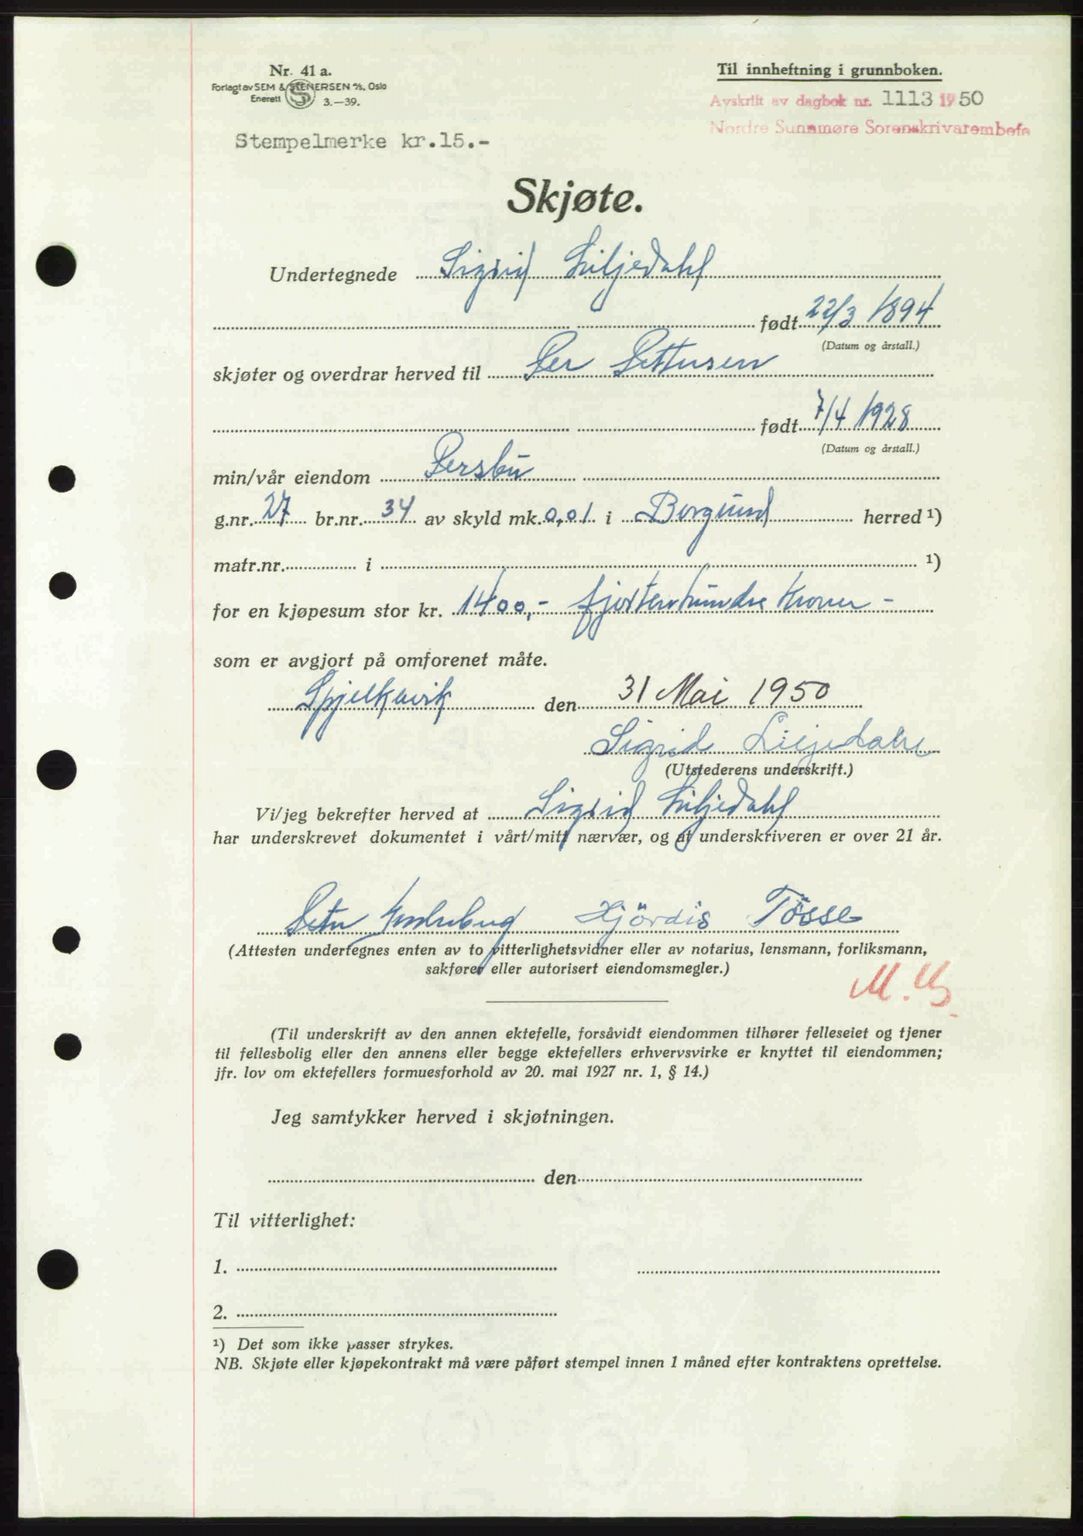 Nr. 41 a.
Forlagt av SEM & STENERSEN A/S, Oslo
Enerett 3.—39.
Til innheftning i grunnboken.
Avskrift av dagbok nr. 1113 1950
Nordre Sunnmøre Sorenskrivarembete
Stempelmerke kr.15.-
Skjøte.
Undertegnede Sigrid Liljedahl
født 22/3 1894
(Datum og årstall.)
skjøter og overdrar herved til Per Pettersen
født 7/4 1928
(Datum og årstall.)
min/vår eiendom Persbu
g.nr. 27 br.nr. 34 av skyld mk. 0,01 i Borgund herred ¹)
matr.nr. i ¹)
for en kjøpesum stor kr. 1400,- fjortenhundre kroner -
som er avgjort på omforenet måte.
Spjelkavik den 31 Mai 1950
Sigrid Liljedahl
(Utstederens underskrift.)
Vi/jeg bekrefter herved at Sigrid Liljedahl
har underskrevet dokumentet i vårt/mitt nærvær, og at underskriveren er over 21 år.
Hjördis Tösse
(Attesten undertegnes enten av to vitterlighetsvidner eller av notarius, lensmann, forliksmann,
sakfører eller autorisert eiendomsmegler.)
(Til underskrift av den annen ektefelle, forsåvidt eiendommen tilhører felleseiet og tjener
til fellesbolig eller den annens eller begge ektefellers erhvervsvirke er knyttet til eiendommen;
jfr. lov om ektefellers formuesforhold av 20. mai 1927 nr. 1, § 14.)
Jeg samtykker herved i skjøtningen.
den
Til vitterlighet:
1.
2.
¹) Det som ikke passer strykes.
NB. Skjøte eller kjøpekontrakt må være påført stempel innen 1 måned efter kontraktens oprettelse.